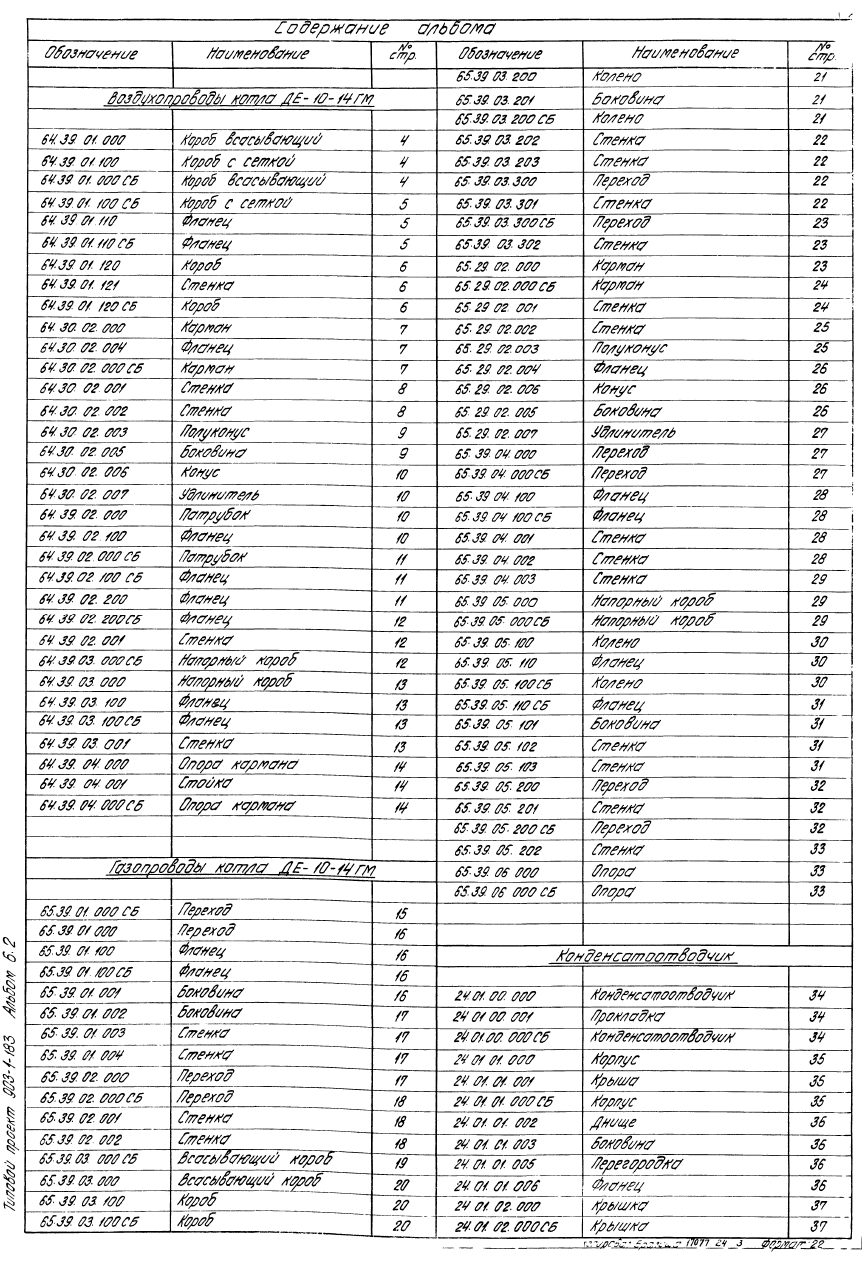 Содержание альбома
Обозначение Наименование № стр.
Воздухопроводы котла ДЕ-10-14ГМ
64.39.01.000 Короб всасывающий 4
64.39.01.100 Короб с сеткой 4
64.39.01.000СБ Короб всасывающий 4
64.39.01.100СБ Короб с сеткой 5
64.39.01.110 Фланец 5
64.39.01.110СБ Фланец 5
64.39.01.120 Короб 6
64.39.01.121 Стенка 6
64.39.01.120СБ Короб 6
64.30.02.000 Карман 7
64.30.02.004 Фланец 7
64.30.02.000СБ Карман 7
64.30.02.001 Стенка 8
64.30.02.002 Стенка 8
64.30.02.003 Полуконус 9
64.30.02.005 Боковина 9
64.30.02.006 Конус 10
64.30.02.007 Удлинитель 10
64.39.02.000 Патрубок 10
64.39.02.100 Фланец 10
64.39.02.000СБ Патрубок 11
64.39.02.100СБ Фланец 11
64.39.02.200 Фланец 11
64.39.02.200СБ Фланец 12
64.39.02.001 Стенка 12
64.39.03.000СБ Напорный короб 12
64.39.03.000 Напорный короб 13
64.39.03.100 Фланец 13
64.39.03.100СБ Фланец 13
64.39.03.001 Стенка 13
64.39.04.000 Опора кармана 14
64.39.04.001 Стойка 14
64.39.04.000СБ Опора кармана 14
Газопроводы котла ДЕ-10-14ГМ
65.39.01.000СБ Переход 15
65.39.01.000 Переход 16
65.39.01.100 Фланец 16
65.39.01.100СБ Фланец 16
65.39.01.001 Боковина 16
65.39.01.002 Боковина 17
65.39.01.003 Стенка 17
65.39.01.004 Стенка 17
65.39.02.000 Переход 17
65.39.02.000СБ Переход 18
65.39.02.001 Стенка 18
65.39.02.002 Стенка 18
65.39.03.000СБ Всасывающий короб 19
65.39.03.000 Всасывающий короб 20
65.39.03.100 Короб 20
65.39.03.100СБ Короб 20
Обозначение Наименование № стр.
65.39.03.200 Колено 21
65.39.03.201 Боковина 21
65.39.03.200СБ Колено 21
65.39.03.202 Стенка 22
65.39.03.203 Стенка 22
65.39.03.300 Переход 22
65.39.03.301 Стенка 22
65.39.03.300СБ Переход 23
65.39.03.302 Стенка 23
65.29.02.000 Карман 23
65.29.02.000СБ Карман 24
65.29.02.001 Стенка 24
65.29.02.002 Стенка 25
65.29.02.003 Полуконус 25
65.29.02.004 Фланец 26
65.29.02.006 Конус 26
65.29.02.005 Боковина 26
65.29.02.007 Удлинитель 27
65.39.04.000 Переход 27
65.39.04.000СБ Переход 27
65.39.04.100 Фланец 28
65.39.04.100СБ Фланец 28
65.39.04.001 Стенка 28
65.39.04.002 Стенка 28
65.39.04.003 Стенка 29
65.39.05.000 Напорный короб 29
65.39.05.000СБ Напорный короб 29
65.39.05.100 Колено 30
65.39.05.110 Фланец 30
65.39.05.100СБ Колено 30
65.39.05.110СБ Фланец 31
65.39.05.101 Боковина 31
65.39.05.102 Стенка 31
65.39.05.103 Стенка 31
65.39.05.200 Переход 32
65.39.05.201 Стенка 32
65.39.05.200СБ Переход 32
65.39.05.202 Стенка 33
65.39.06.000 Опора 33
65.39.06.000СБ Опора 33
Конденсатоотводчик
24.01.00.000 Конденсатоотводчик 34
24.01.00.001 Прокладка 34
24.01.00.000СБ Конденсатоотводчик 34
24.01.01.000 Корпус 35
24.01.01.001 Крыша 35
24.01.01.000СБ Корпус 35
24.01.01.002 Днище 36
24.01.01.003 Боковина 36
24.01.01.005 Перегородка 36
24.01.01.006 Фланец 36
24.01.02.000 Крышка 37
24.01.02.000СБ Крышка 37
Типовой проект 903-1-183 Альбом 6.2
17077 24 3 Формат 22